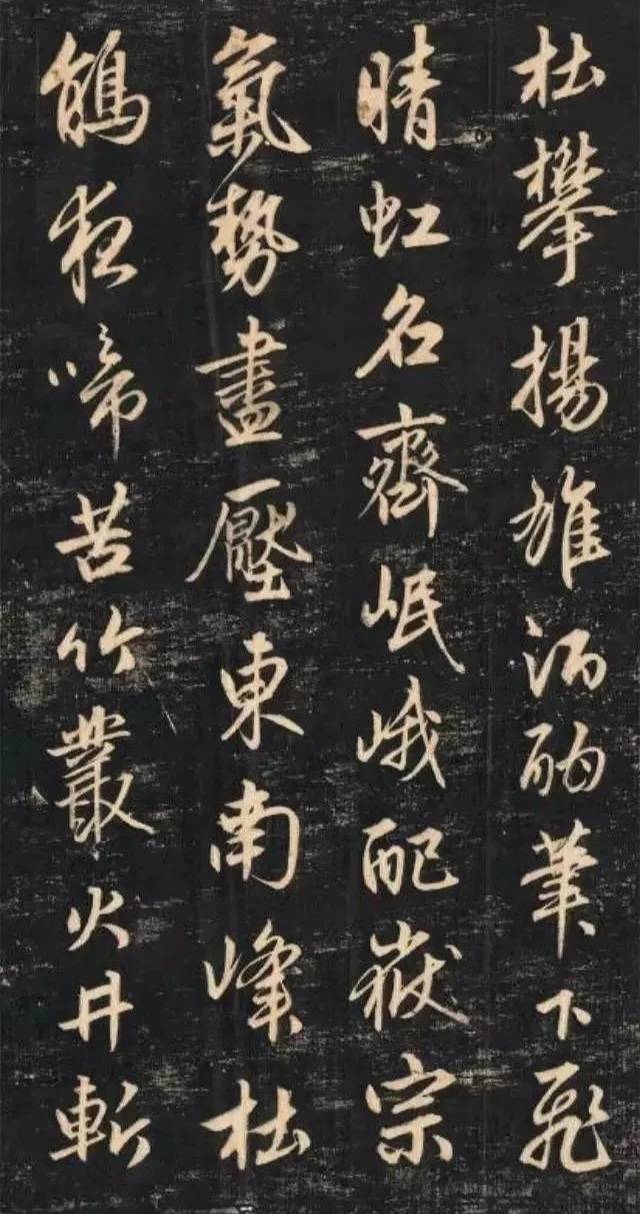 杜攀揚雄酒酣筆下飛
晴虹名齊岷峨配嶽宗
氣勢盡壓東南峰杜
鵑夜啼苦竹叢火井斬